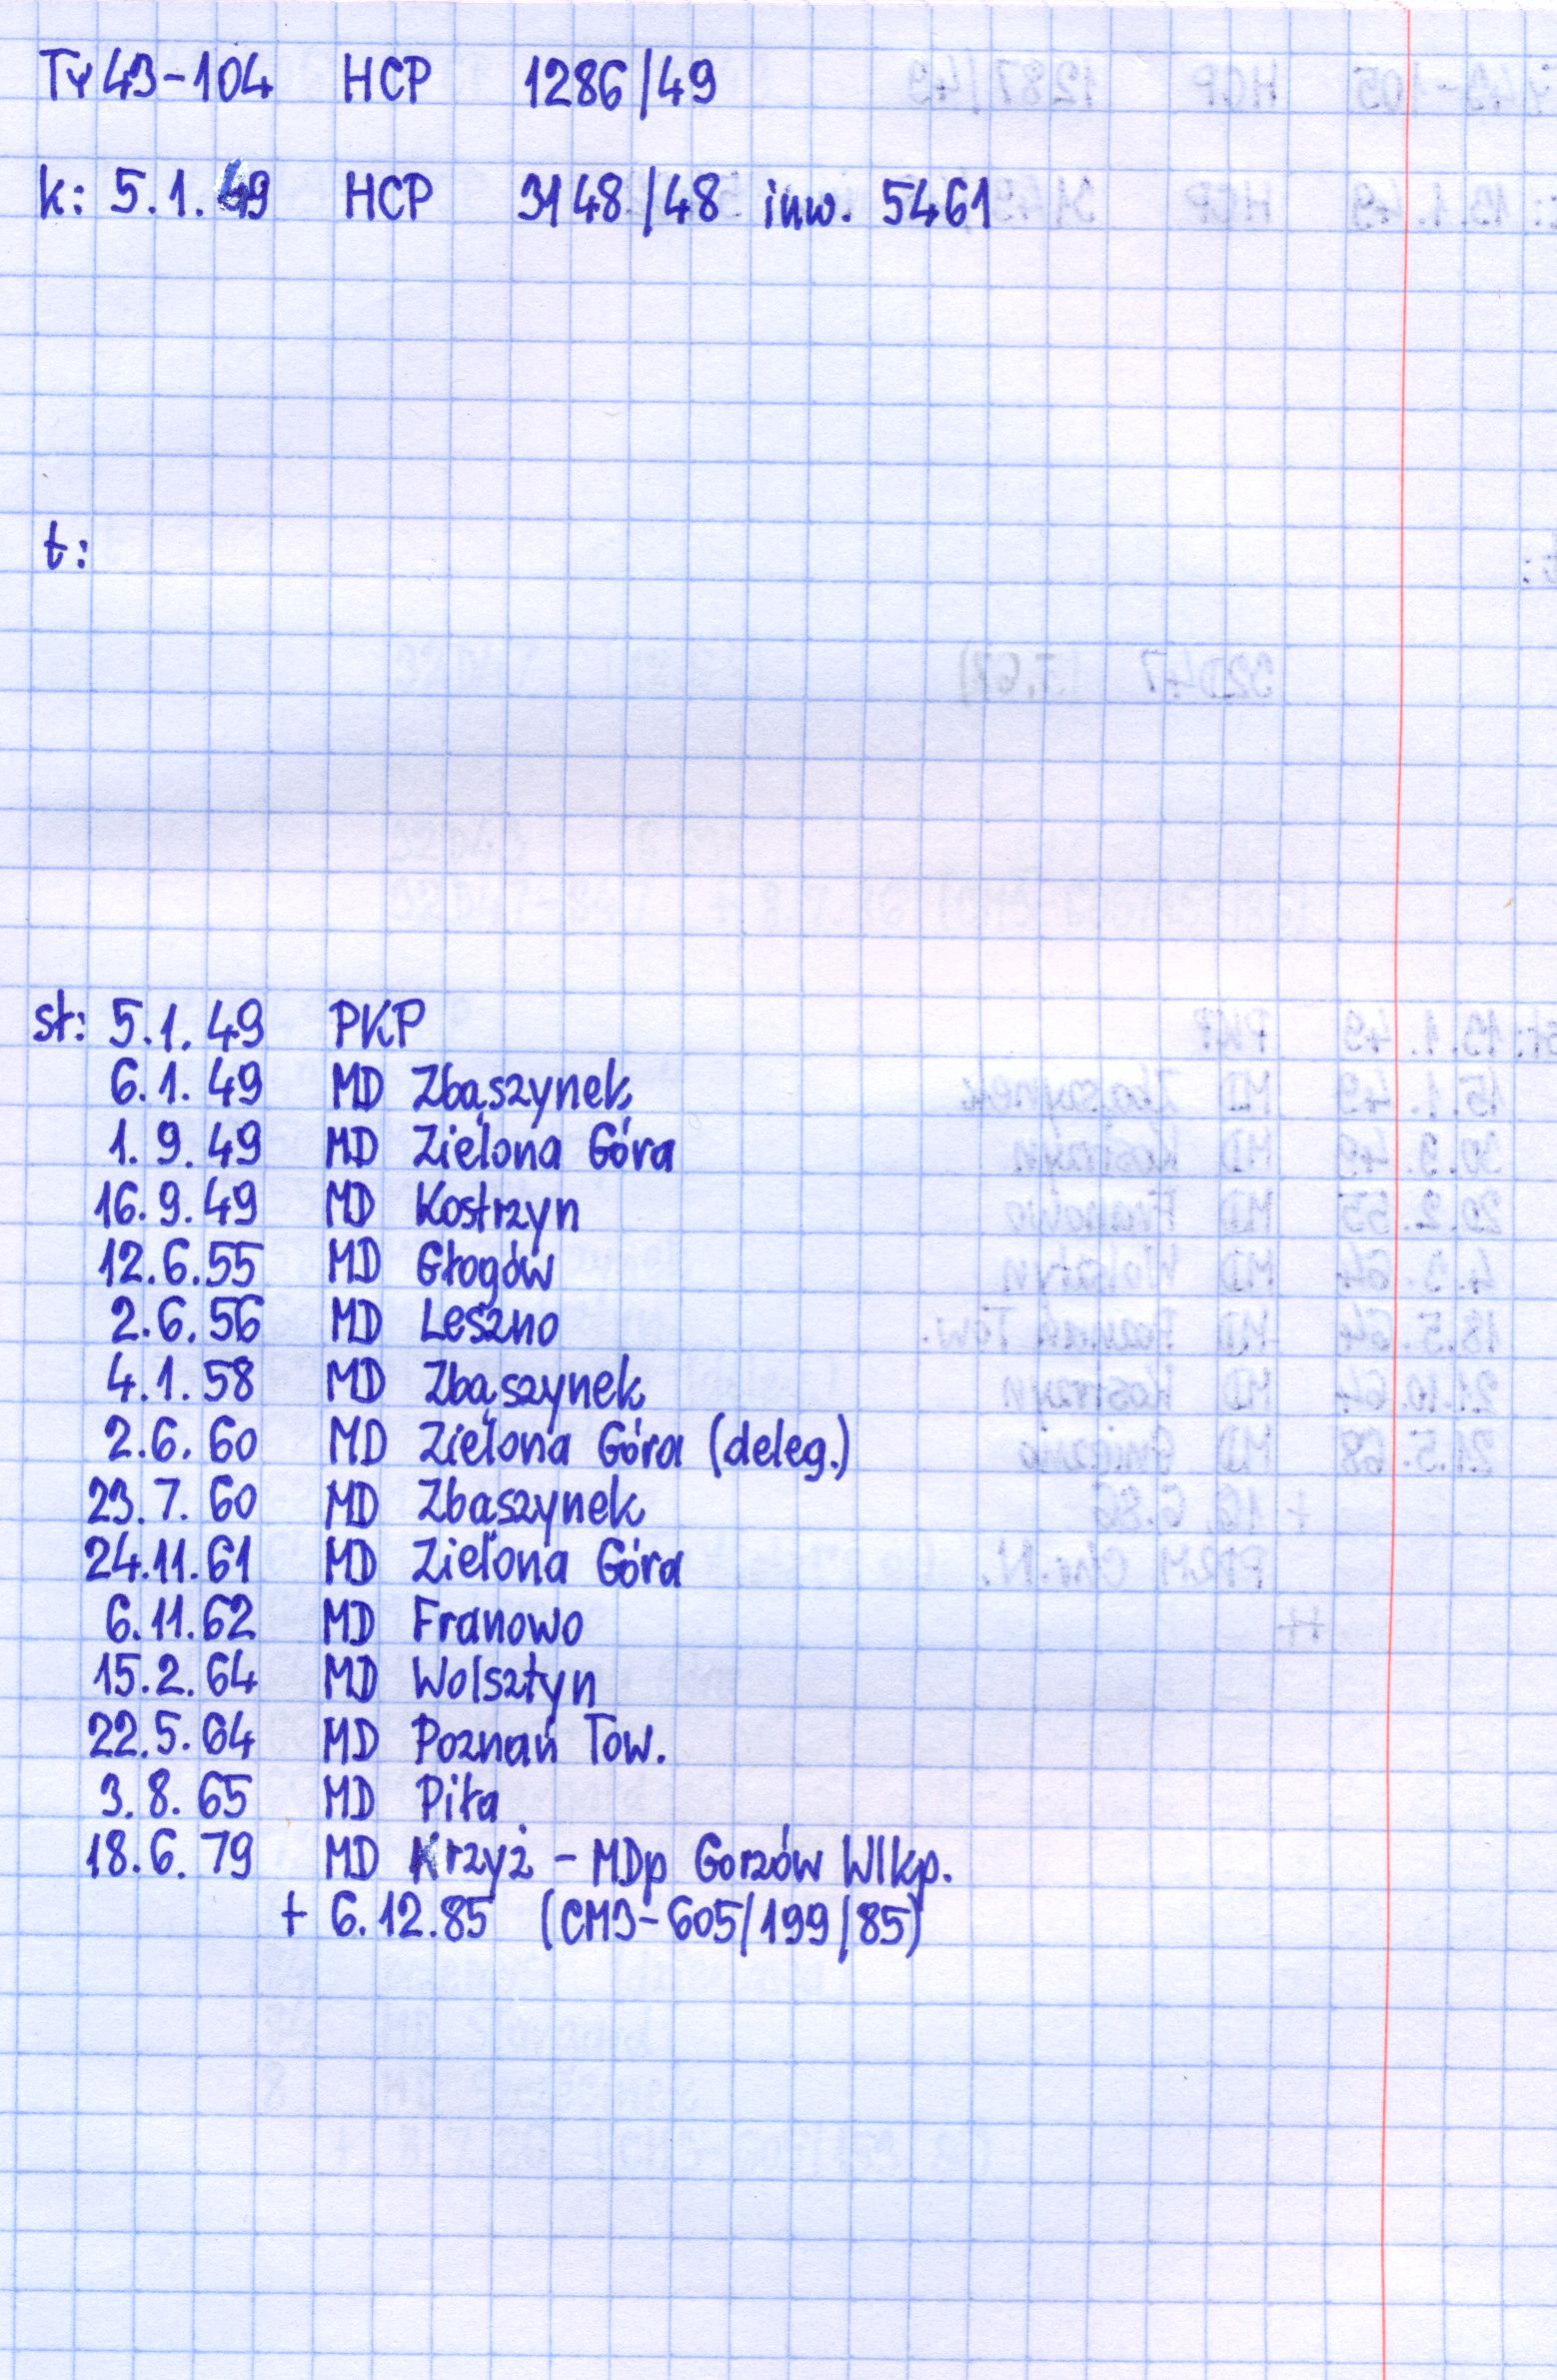 Ty43-104 HCP 1286/49
k: 5.1.49 HCP 3148/48 inw. 5461
t:
st: 5.1.49 PKP
6.1.49 MD Zbąszynek
1.9.49 MD Zielona Góra
16.9.49 MD Kostrzyn
12.6.55 MD Głogów
2.6.56 MD Leszno
4.1.58 MD Zbąszynek
2.6.60 MD Zielona Góra (deleg.)
23.7.60 MD Zbąszynek
24.11.61 MD Zielona Góra
6.11.62 MD Franowo
15.2.64 MD Wolsztyn
22.5.64 MD Poznań Tow.
3.8.65 MD Piła
18.6.79 MD Krzyż - MDp Gorzów Wlkp.
+ 6.12.85 (CM3-605/199/85)